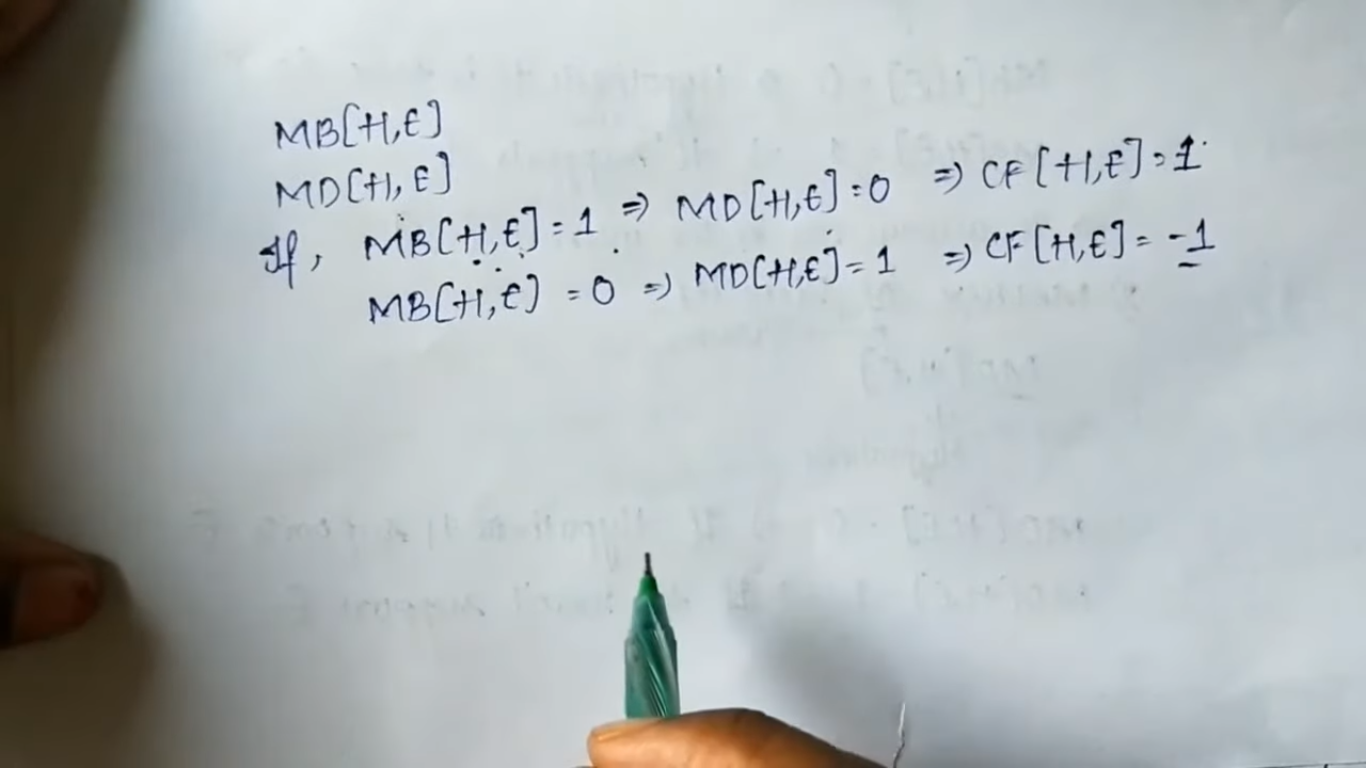 MB[H,E]
MD[H,E]
If, MB[H,E] = 1 ⇒ MD[H,E] = 0 ⇒ CF[H,E] = 1
MB[H,E] = 0 ⇒ MD[H,E] = 1 ⇒ CF[H,E] = -1